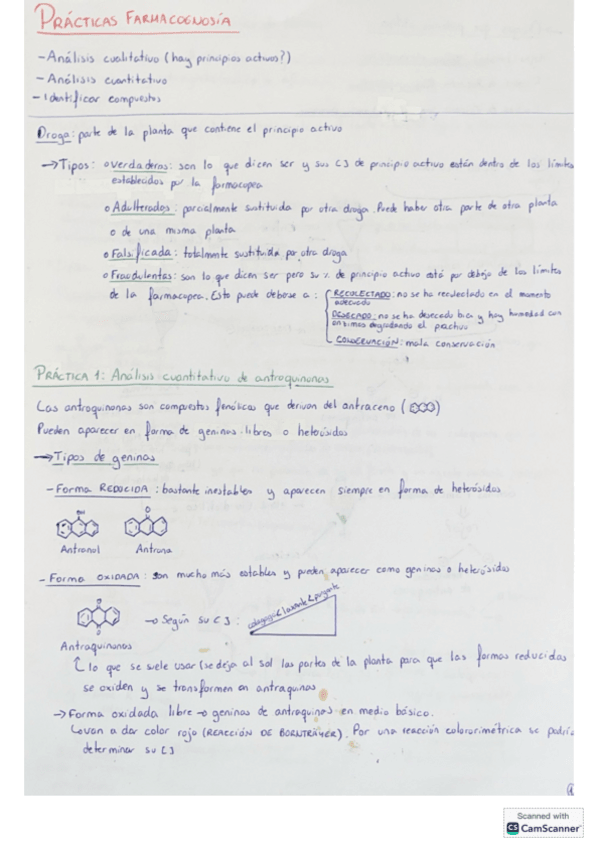 PRÁCTICAS FARMACOGNOSÍA
- Análisis cualitativo (hay principios activos?)
- Análisis cuantitativo
- Identificar compuestos
Droga: parte de la planta que contiene el principio activo
→ Tipos: o verdaderas: son lo que dicen ser y sus [ ] de principio activo están dentro de los límites
establecidos por la farmacopea
o Adulteradas: parcialmente sustituida por otra droga. Puede haber otra parte de otra planta
o de una misma planta
o Falsificada: totalmente sustituida por otra droga
o Fraudulentas: son lo que dicen ser pero su % de principio activo está por debajo de los límites
de la farmacopea. Esto puede deberse a:
RECOLECTADO: no se ha recolectado en el momento
adecuado
DESECADO: no se ha desecado bien y hay humedad con
enzimas degradando el p.activo
CONSERVACIÓN: mala conservación
PRÁCTICA 1: Análisis cuantitativo de antraquinonas
Las antraquinonas son compuestos fenólicos que derivan del antraceno ( )
Pueden aparecer en forma de geninas libres o heterósidos
→ Tipos de geninas
- Forma REDUCIDA: bastante inestables y aparecen siempre en forma de heterósidos
OH
O
Antranol Antrona
- Forma OXIDADA: son mucho más estables y pueden aparecer como geninas o heterósidos
O
O
→ Según su [ ]: colagogo < laxante < purgante
Antraquinonas
lo que se suele usar (se deja al sol las partes de la planta para que las formas reducidas
se oxiden y se transformen en antraquinas
→ Forma oxidada libre → geninas de antraquinas en medio básico.
van a dar color rojo (REACCIÓN DE BORNTRÄGER). Por una reacción colororimétrica se podría
determinar su [ ]
1
Scanned with
CS CamScanner